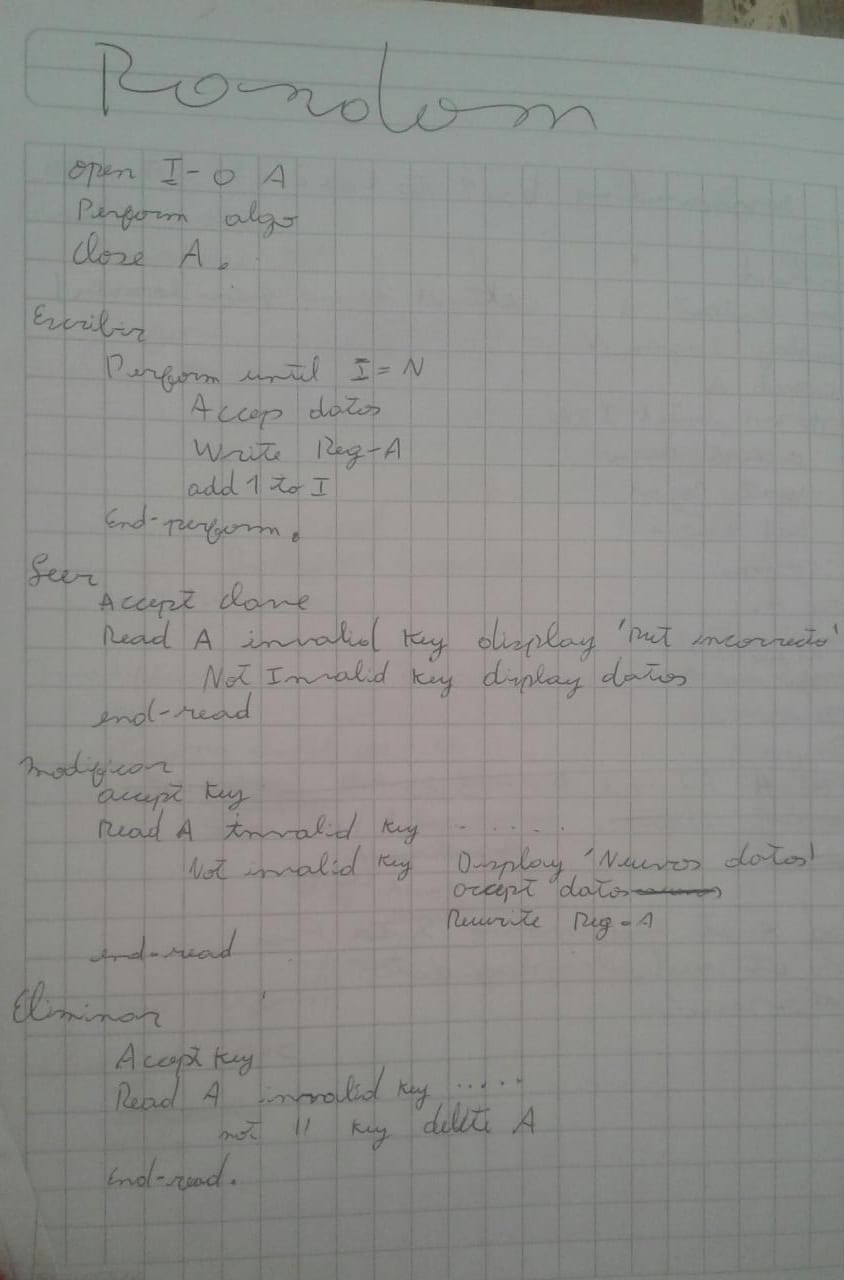 Random
open I-O A
Perform algo
Close A.
Escribir
Perform until I = N
Accep datos
Write Reg-A
add 1 to I
End-perform.
Leer
Accept clave
Read A invalid key display 'Rut incorrecto'
Not Invalid key display datos
end-read
Modificar
accept key
Read A invalid key . . . . .
Not invalid key Display 'Nuevos datos'
accept datos
Rewrite Reg-A
end-read
Eliminar
Accept key
Read A invalid key .....
not " key delete A
End-read.